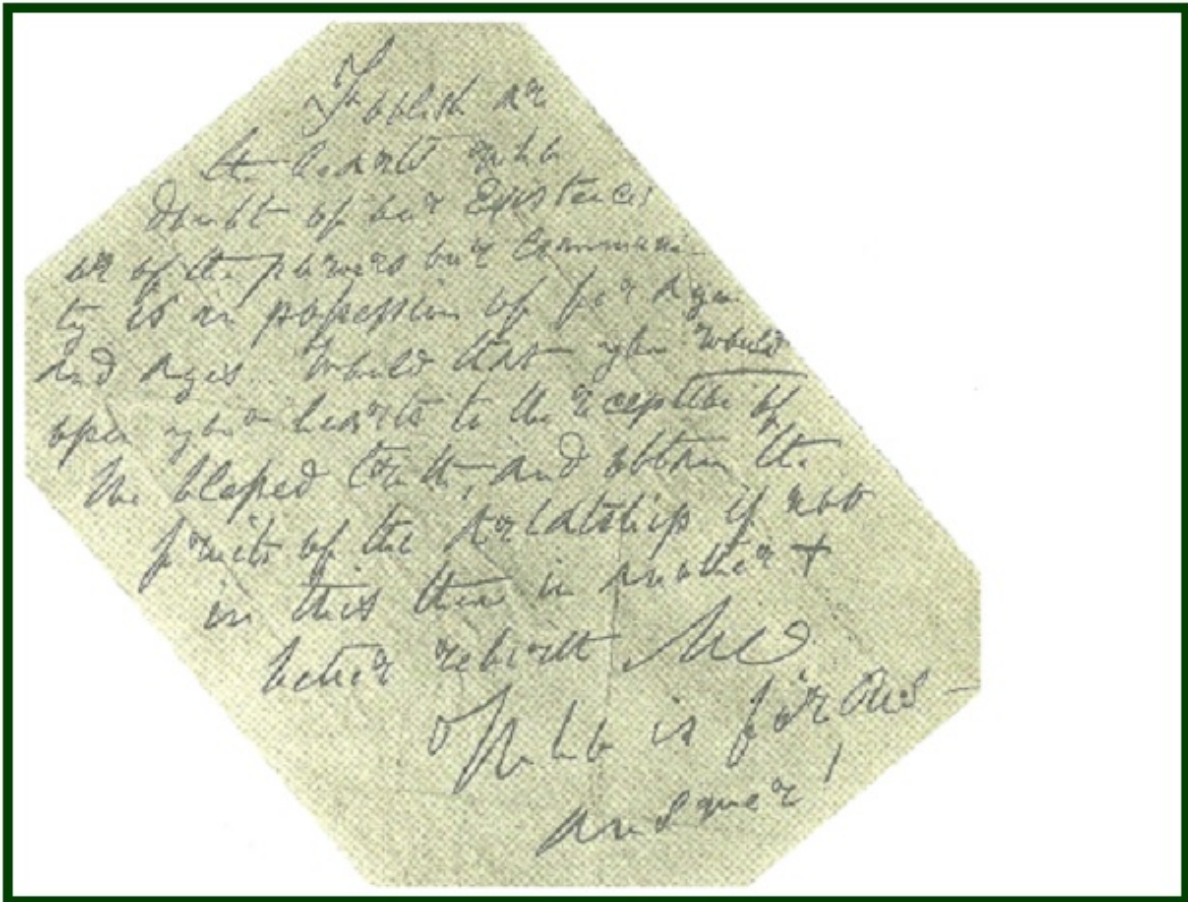 Foolish are
the hearts who
doubt of our Existence!
or of the powers our Communi-
ty is in possession of for ages
and ages. Would that you would
open your hearts to the reception of
the blessed truth, and obtain the
fruits of the Arhatship if not
in this then in another &
better rebirth. M∴
Who is for us –
answer!